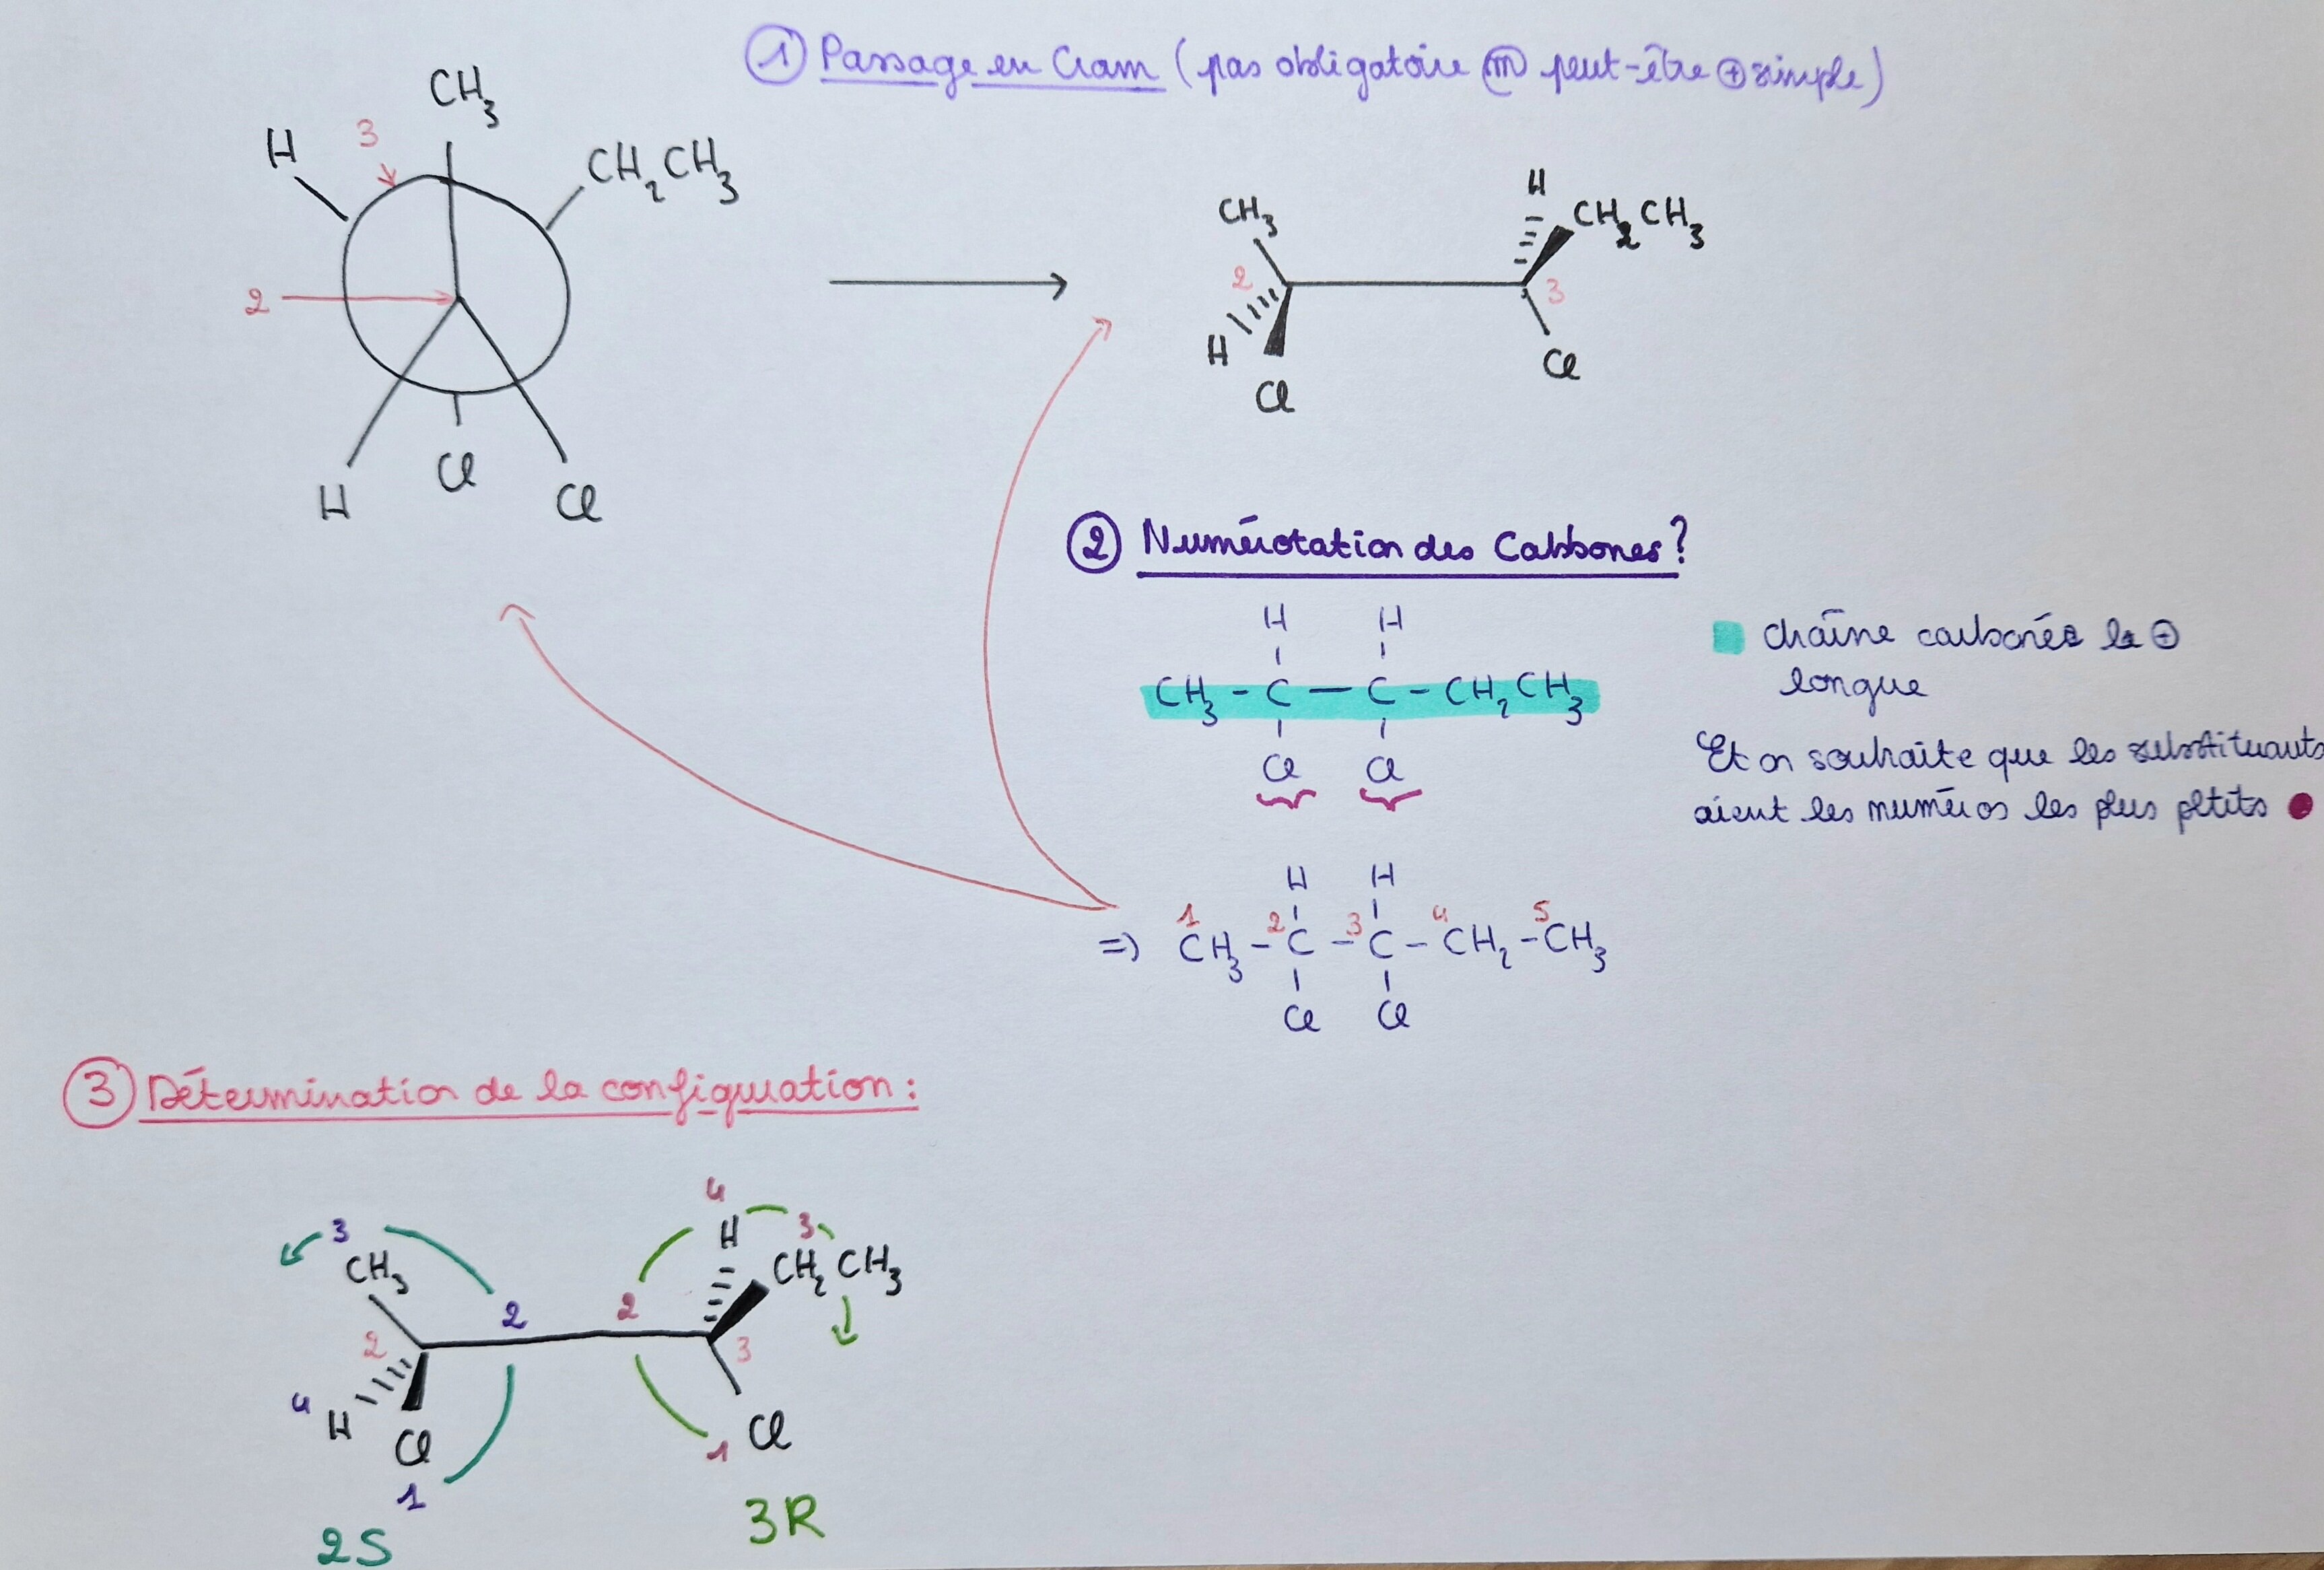 ① Passage en Cram (pas obligatoire m̂ peut-être ⊕ simple)
CH3
H
3
CH2CH3
2
H
Cl
Cl
CH3
H
CH2CH3
2
3
H
Cl
Cl
② Numérotation des Carbones?
H H
CH3 - C — C - CH2CH3
Cl Cl
chaîne carbonée la ⊕
longue
Et on souhaite que les substituants
aient les numéros les plus petits
H H
1 2 3 4 5
=> CH3 - C - C - CH2 - CH3
Cl Cl
③ Détermination de la configuration :
3
CH3
2
2
4
H
Cl
1
2S
4
H
3
CH2CH3
2
3
Cl
1
3R